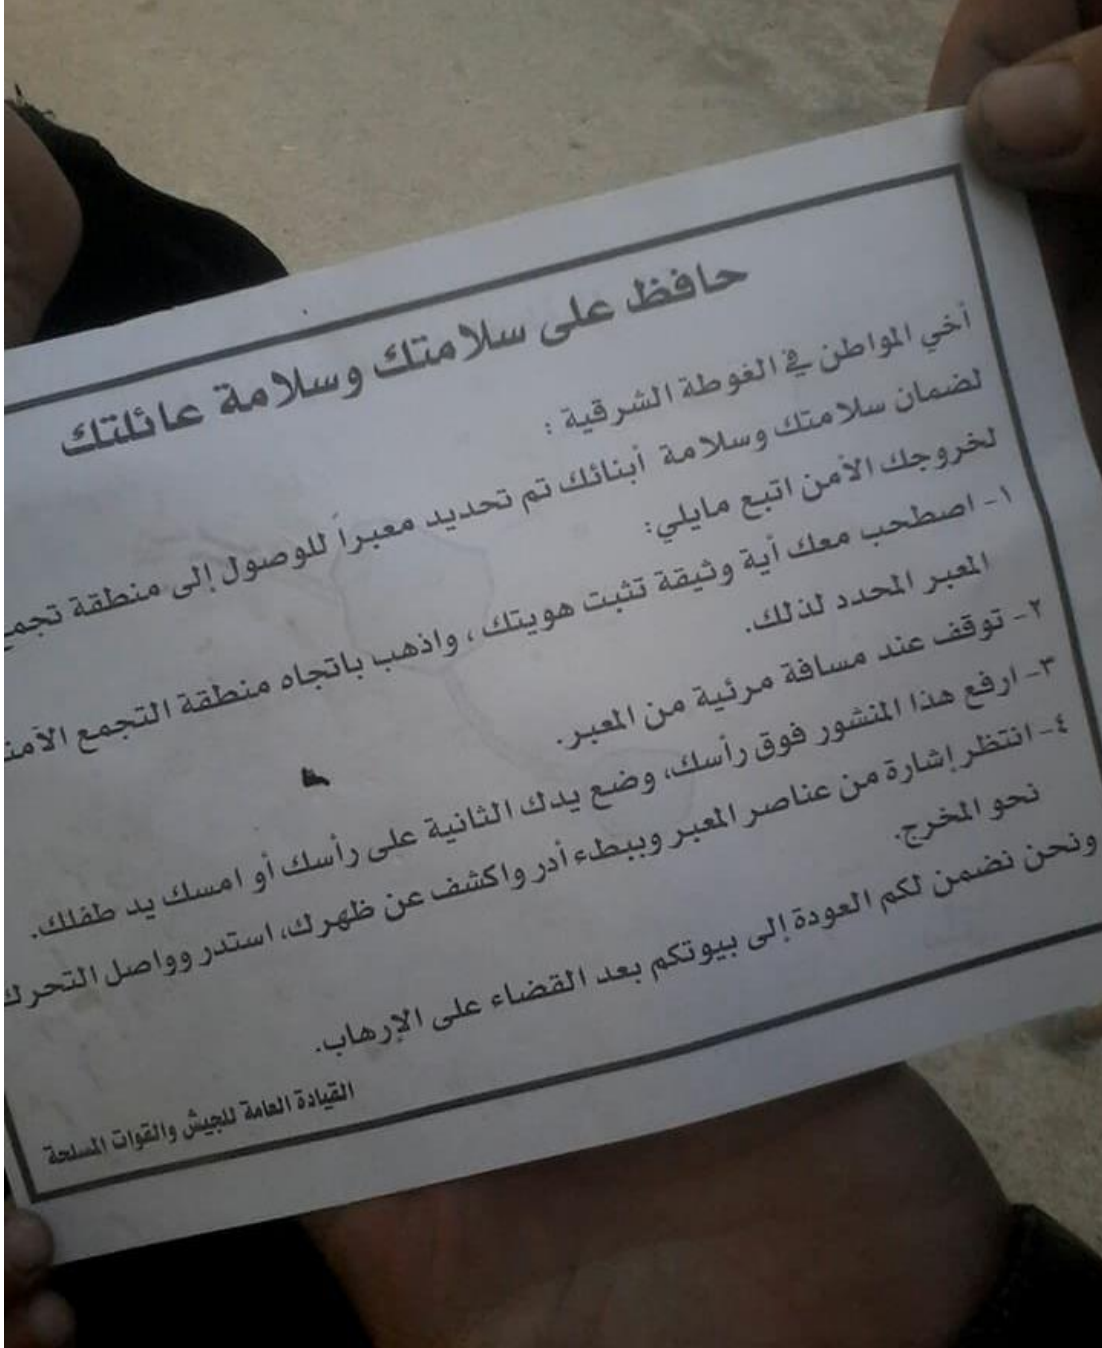 حافظ على سلامتك وسلامة عائلتك
أخي المواطن في الغوطة الشرقية :
لضمان سلامتك وسلامة أبنائك تم تحديد معبراً للوصول إلى منطقة
لخروجك الأمن اتبع مايلي:
١- اصطحب معك أية وثيقة تثبت هويتك ، واذهب باتجاه منطقة التجمع
المعبر المحدد لذلك.
٢- توقف عند مسافة مرئية من المعبر.
٣- ارفع هذا المنشور فوق رأسك، وضع يدك الثانية على رأسك أو امسك يد طفلك.
٤- انتظر إشارة من عناصر المعبر وببطء أدر واكشف عن ظهرك، استدر وواصل التحرك
نحو المخرج.
ونحن نضمن لكم العودة إلى بيوتكم بعد القضاء على الإرهاب.
القيادة العامة للجيش والقوات المسلحة